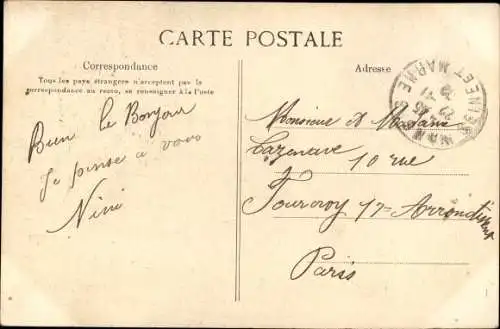 CARTE POSTALE
Correspondance
Tous les pays étrangers n'acceptent pas la
correspondance au recto, se renseigner à la Poste
Bien le Bonjour
Je pense a vous
Nini
Adresse
SEINE ET MARNE
Monsieur et Madame
Cazeneuve 10 rue
Fourcroy 17e Arrondissent
Paris